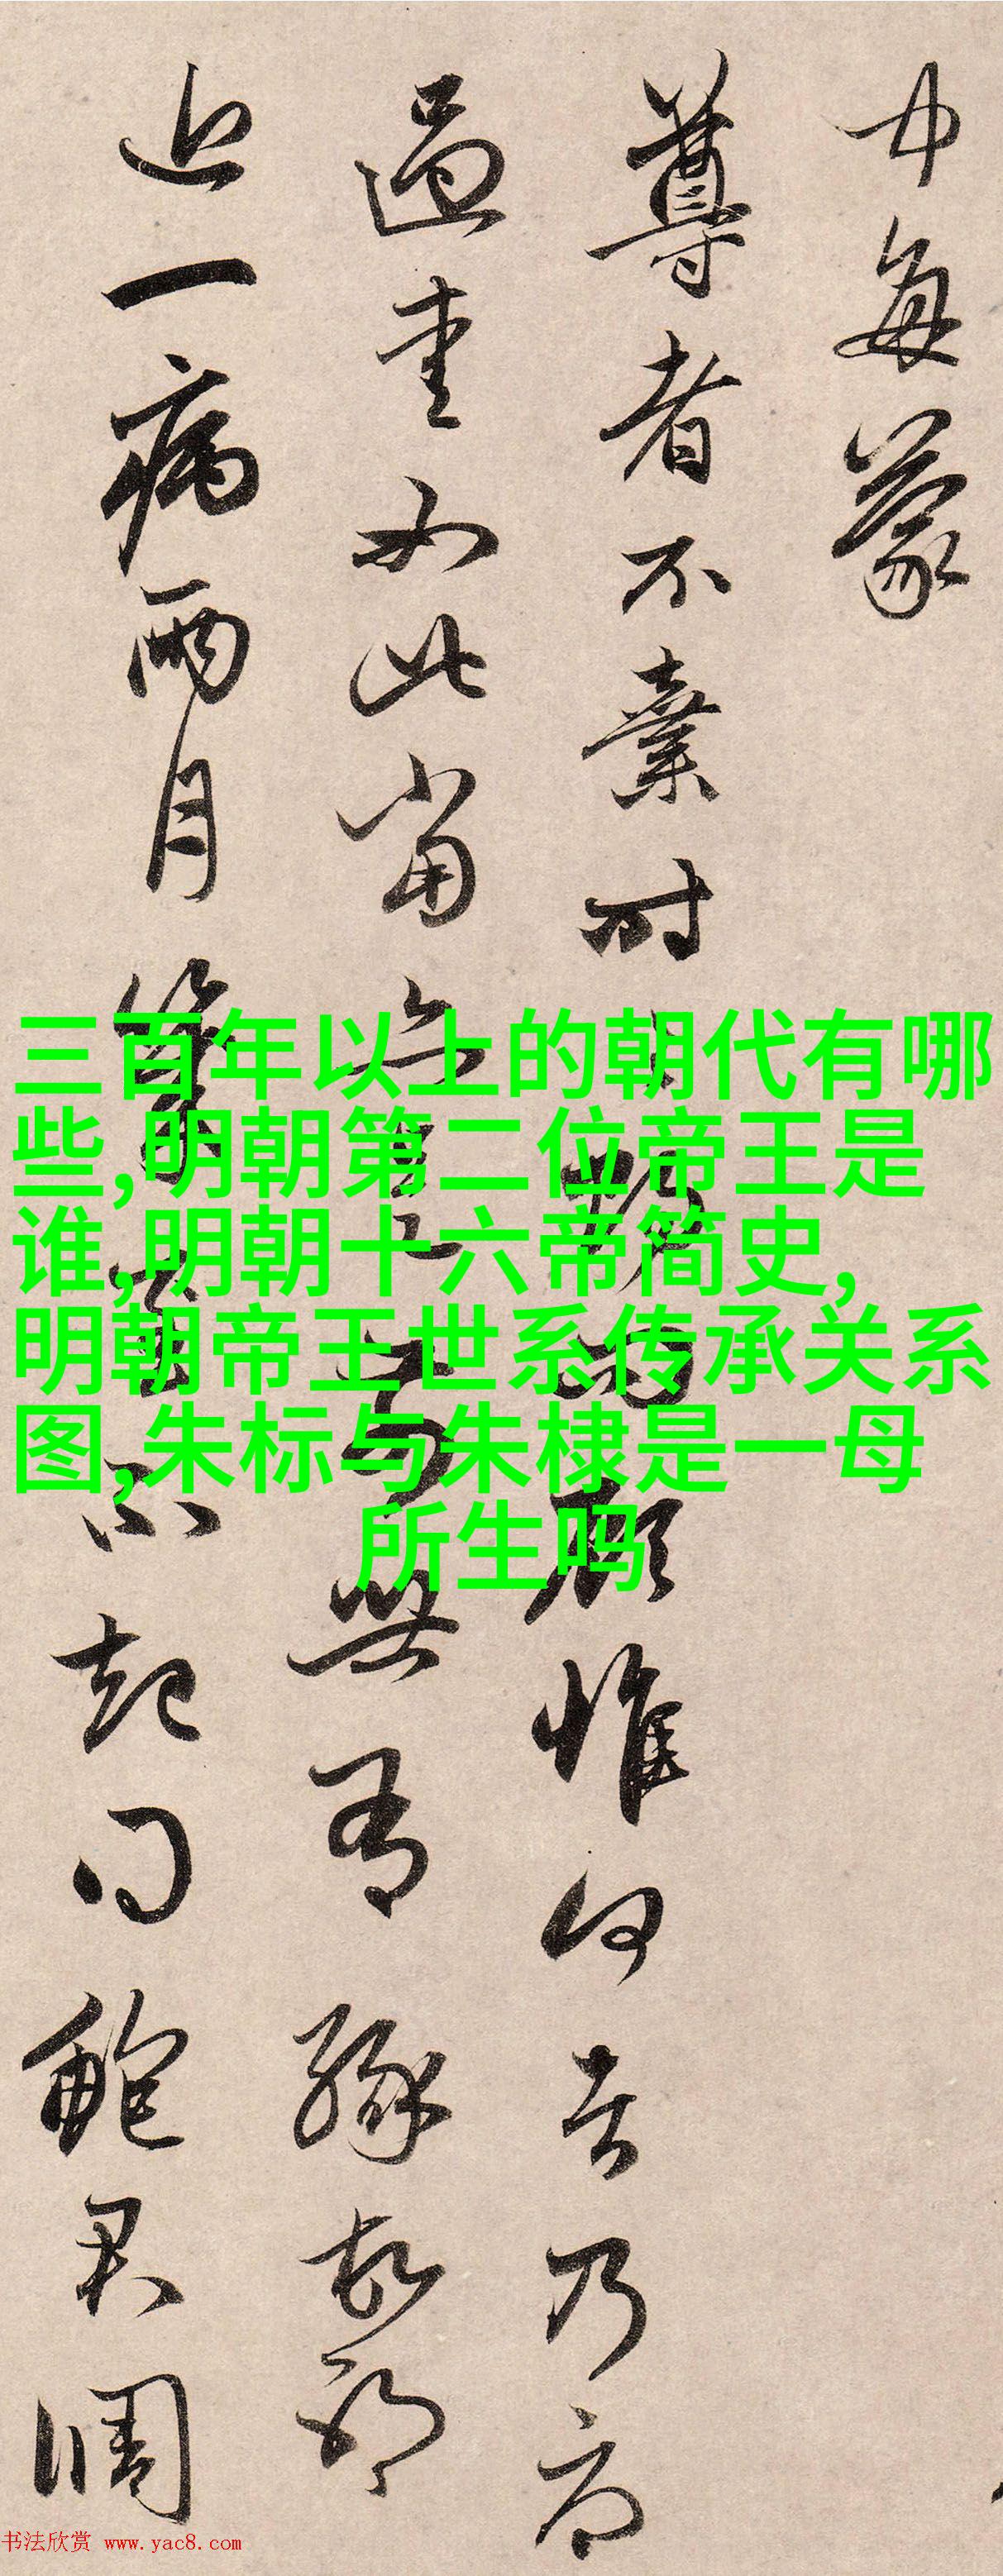 中每蒙
尊者不棄時
顧惟何者乃高
過重如此當
無有緣故部
近一病兩月
不起同鮑君
三百年以上的朝代有哪
些,明朝第二位帝王是
谁,明朝十六帝简史,
明朝帝王世系传承关系
图,朱标与朱棣是一母
所生吗
书法欣赏 www.yac8.com